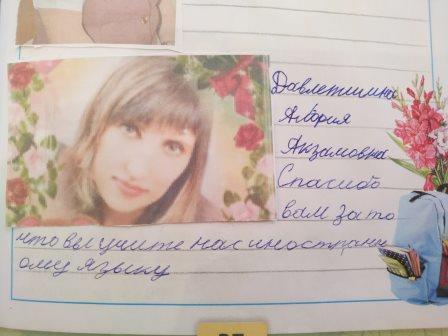 Давлетшина
Акзамовна
Спасибо
вам за то
что вы учите нас иностранн
ому языку